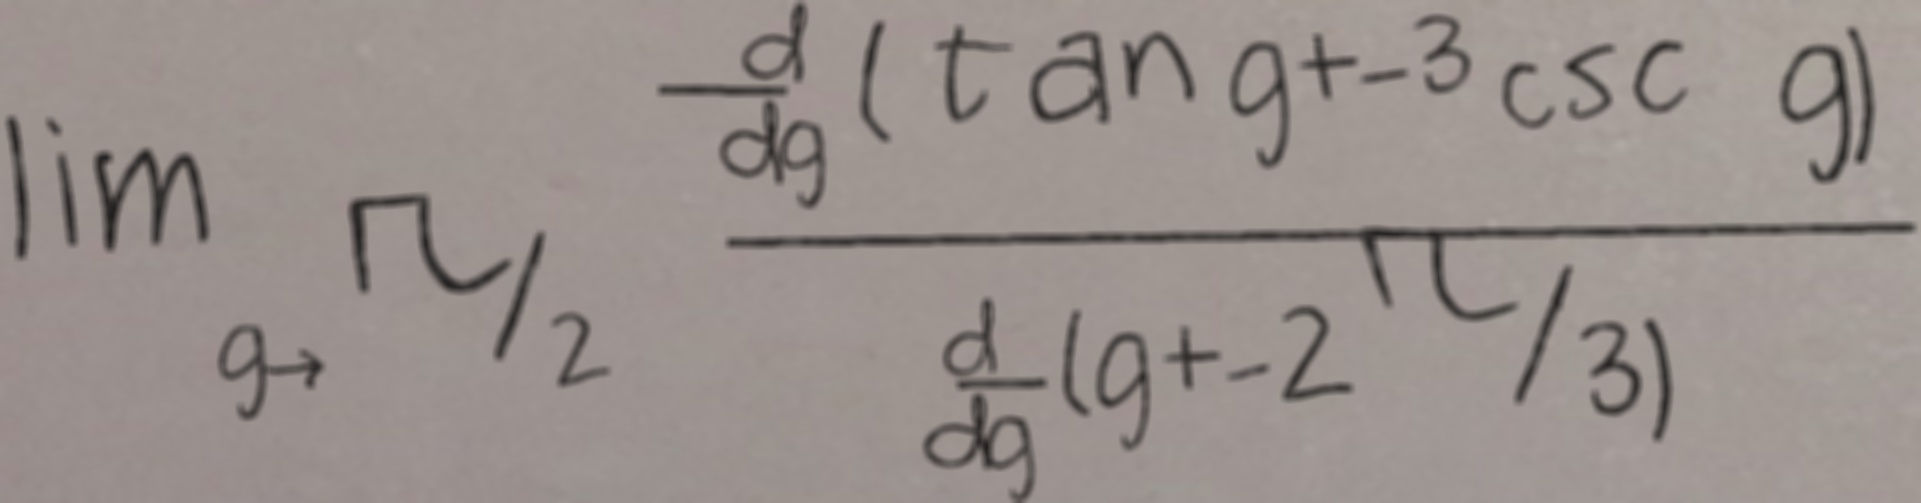 lim g→ π/2 d/dg (tan g + -3 csc g) / d/dg (g + -2π/3)